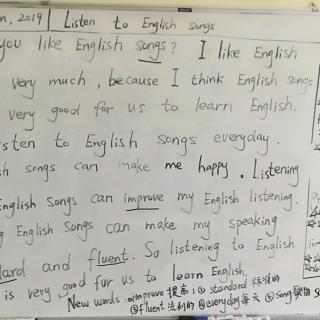 n, 2019 | Listen to English songs
you like English songs? I like English
very much, because I think English songs
very good for us to learn English.
sten to English songs everyday.
h songs can make me happy. Listening
English songs can improve my English listening.
g English songs can make my speaking
dard and fluent. So listening to English
is very good for us to learn English.
New words: ①improve 提高; ② standard 标准的
③fluent 流利的 ④everyday 每天 ⑤song 歌曲